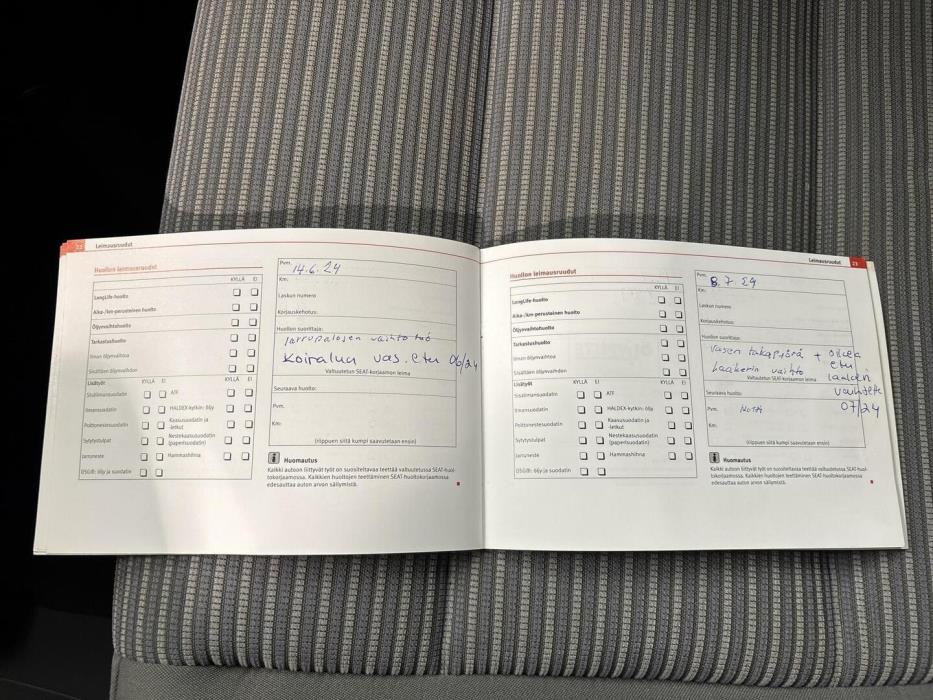 22 Leimausruudut
Huollon leimausruudut
KYLLÄ EI
LongLife-huolto
Aika-/km-perusteinen huolto
Öljynvaihtohuolto
Tarkastushuolto
Ilman öljynvaihtoa
Sisältäen öljynvaihdon
Lisätyöt KYLLÄ EI KYLLÄ EI
Sisäilmansuodatin ATF
Ilmansuodatin HALDEX-kytkin: öljy
Polttonestesuodatin Kaasusuodatin ja -letkut
Sytytystulpat Nestekaasusuodatin (paperisuodatin)
Jarruneste Hammashihna
DSG®: öljy ja suodatin
Pvm. 14.6.24
Km:
Laskun numero
Korjauskehotus:
Huollon suorittaja:
Jarrupalojen vaihto työ
Koiralun vas. etu 06/24
Valtuutetun SEAT-korjaamon leima
Seuraava huolto:
Pvm.
Km:
(riippuen siitä kumpi saavutetaan ensin)
Huomautus
Kaikki autoon liittyvät työt on suositeltavaa teettää valtuutetussa SEAT-huol-
tokorjaamossa. Kaikkien huoltojen teettäminen SEAT-huoltokorjaamossa
edesauttaa auton arvon säilymistä.
Leimausruudut 23
Huollon leimausruudut
KYLLÄ EI
LongLife-huolto
Aika-/km-perusteinen huolto
Öljynvaihtohuolto
Tarkastushuolto
Ilman öljynvaihtoa
Sisältäen öljynvaihdon
Lisätyöt KYLLÄ EI KYLLÄ EI
Sisäilmansuodatin ATF
Ilmansuodatin HALDEX-kytkin: öljy
Polttonestesuodatin Kaasusuodatin ja -letkut
Sytytystulpat Nestekaasusuodatin (paperisuodatin)
Jarruneste Hammashihna
DSG®: öljy ja suodatin
Pvm. 8.7.24
Km:
Laskun numero
Korjauskehotus:
Huollon suorittaja:
Vasen takapyörä + oikea
etu
laakerin vaihto
Valtuutetun SEAT-korjaamon leima
Seuraava huolto:
07/24
Pvm.
Km:
(riippuen siitä kumpi saavutetaan ensin)
Huomautus
Kaikki autoon liittyvät työt on suositeltavaa teettää valtuutetussa SEAT-huol-
tokorjaamossa. Kaikkien huoltojen teettäminen SEAT-huoltokorjaamossa
edesauttaa auton arvon säilymistä.